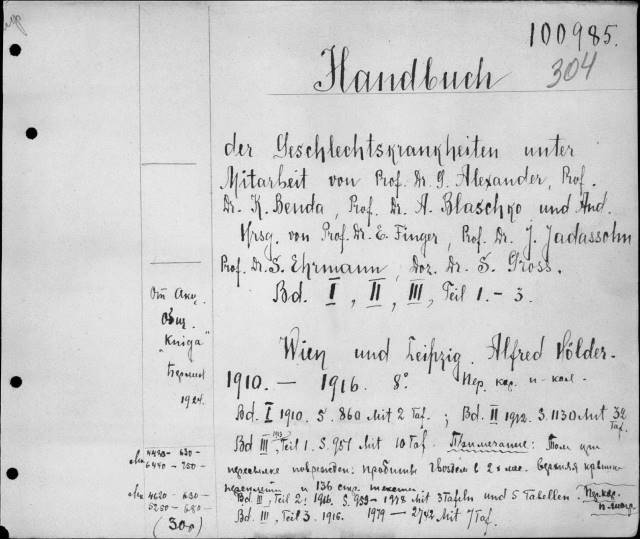 100985.
304
Handbuch
der Geschlechtskrankheiten unter
Mitarbeit von Prof. Dr. G. Alexander, Prof.
Dr. K. Benda, Prof. Dr. A. Blaschko und And.
Hrsg. von Prof. Dr. E. Finger, Prof. Dr. J. Jadassohn
Prof. Dr. S. Ehrmann, Doz. Dr. S. Gross.
Bd. I, II, III, Teil 1.-3.
Wien und Leipzig. Alfred Hölder.
1910. — 1916. 8° Пер. кор. и кол.
Bd. I 1910. S. 860 Mit 2 Taf. ; Bd. II 1912. S. 1130 Mit 32 Taf.
Bd III, 1913 Teil 1. S. 957 Mit 10 Taf. Примечание: Том при
пересылке поврежден: пробит гвоздем в 2х мес. верхняя крышка
переплета и 136 стр. текста.
Bd III, Teil 2: 1916. S. 959 — 1978 Mit 3 Tafeln und 5 Tabellen Пер. кор.
Bd. III, Teil 3. 1916. 1979 — 2742 Mit 7 Taf.
От Акц.
Общ.
"Kniga"
Берлин
1924.
4480 - 630 -
6440 - 750 -
4620 - 630 -
5250 - 680 -
(30р)